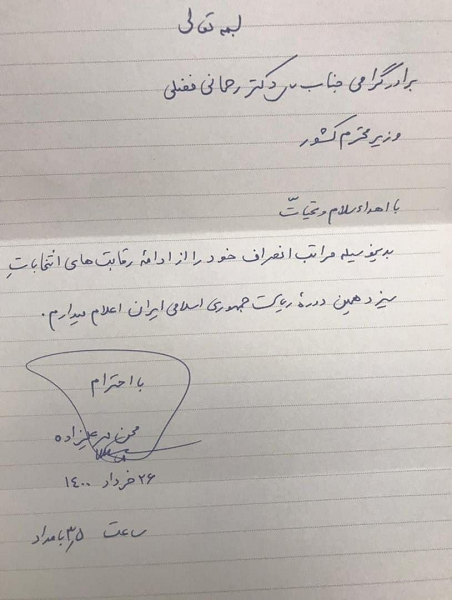 بسمه تعالی
برادر گرامی جناب آقای دکتر رحمانی فضلی
وزیر محترم کشور
با اهداء سلام و تحیّات
بدینوسیله مراتب انصراف خود را از ادامهٔ رقابت‌های انتخاباتِ
سیزدهمین دورهٔ ریاست جمهوری اسلامی ایران اعلام میدارم.
با احترام
محسن مهرعلیزاده
۲۶ خرداد ۱۴۰۰
ساعت ۳٫۵ بامداد